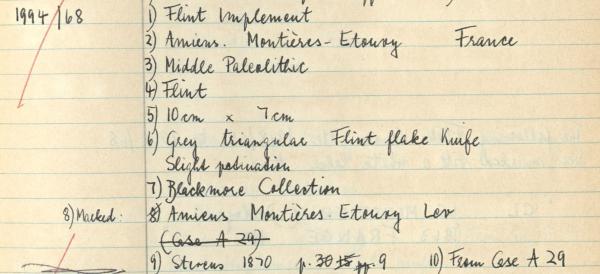 1994/68 1) Flint Implement
2) Amiens. Montières-Etouvy France
3) Middle Paleolithic
4) Flint
5) 10 cm x 7 cm
6) Grey triangular Flint flake Knife
Slight patination
7) Blackmore Collection
8) Marked: 8) Amiens Montières Etouvy Lev
(Case A 29)
9) Stevens 1870 p. 30 pp. 9 10) From Case A 29